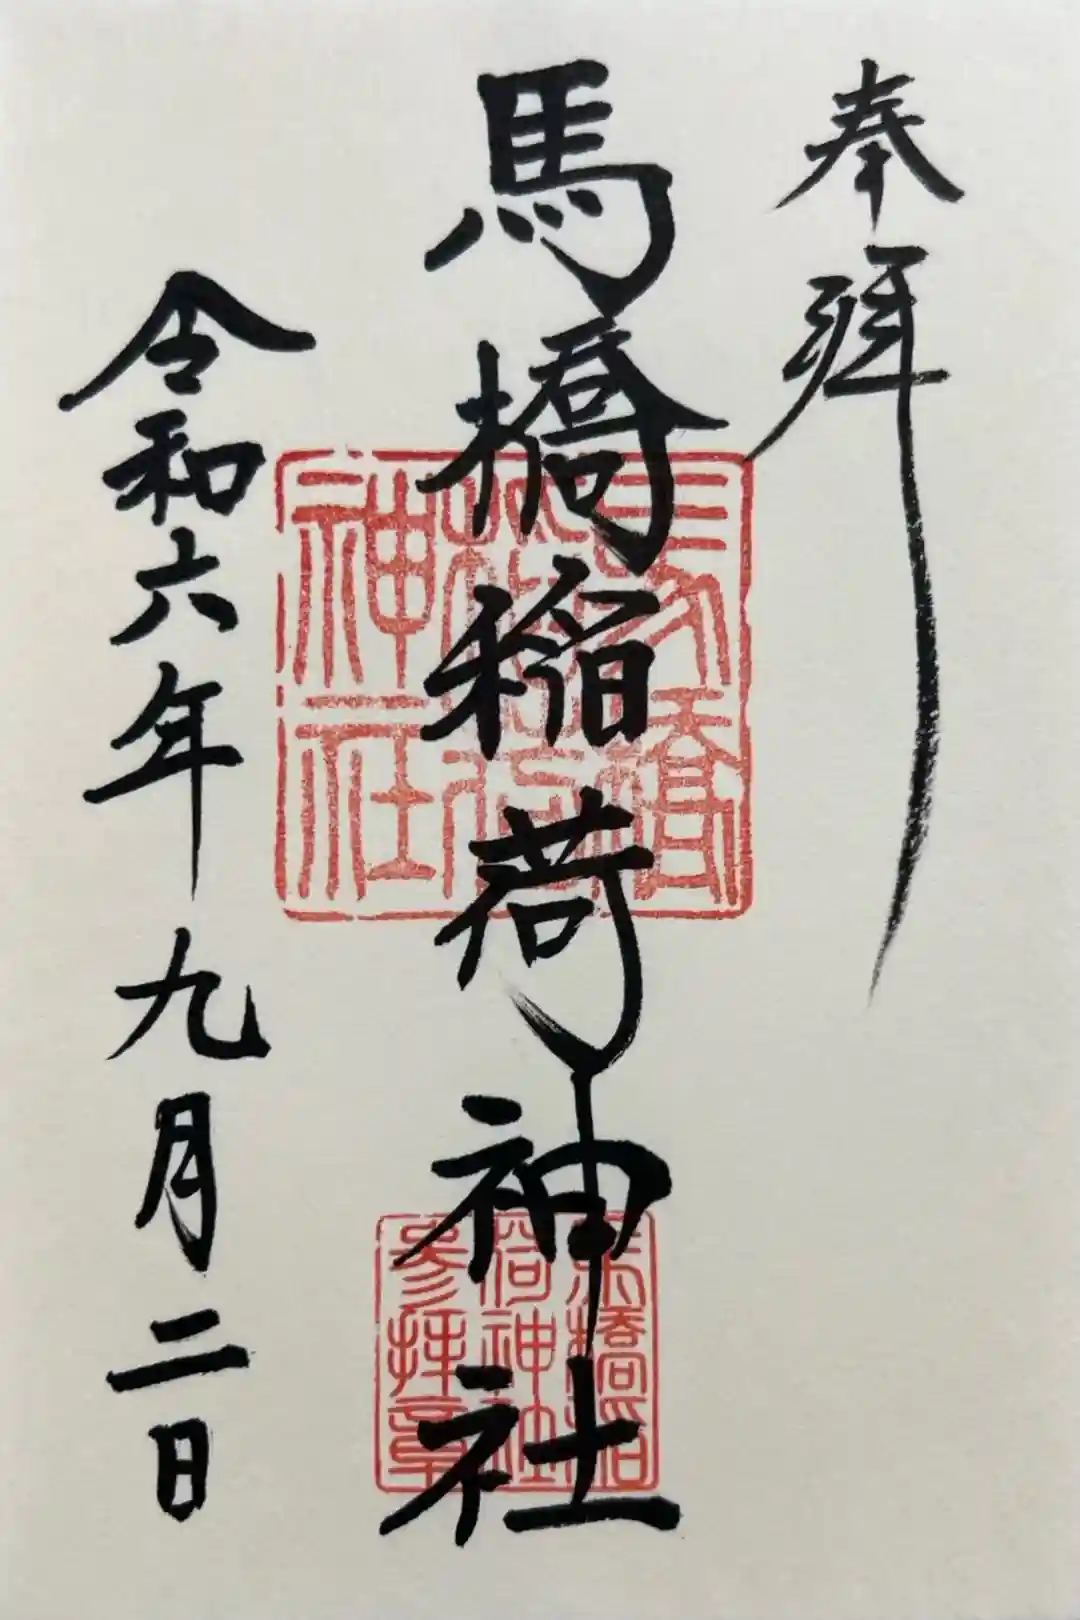 奉拜
馬橋稲荷神社
令和六年九月二日
馬橋
稲荷
神社
馬橋稲
荷神社
参拝章